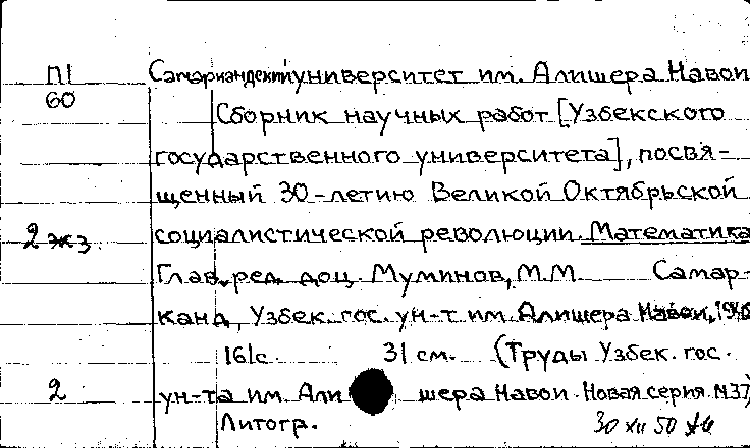 П1 Самаркандский университет им. Алишера Навои
60
Сборник научных работ [Узбекского
государственного университета], посвя-
щенный 30-летию Великой Октябрьской
2 экз. социалистической революции. Математика
Глав. ред. доц. Муминов, М.М. Самар-
канд, Узбек. гос. ун-т им. Алишера Навои,
161с. 31 см. (Труды Узбек. гос.
2 ун-та им. Алишера Навои. Новая серия. №37)
Литогр.
30 XII 50